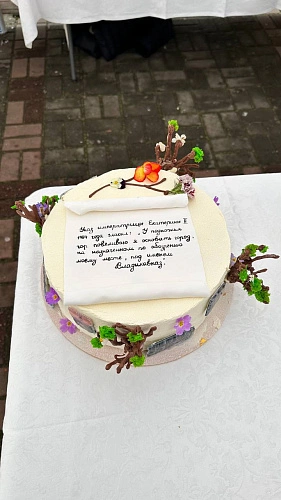 Указ императрицы Екатерины II
1784 года гласил: „У подножия
гор повелеваю я основать город,
на назначенном по обозрению
моему месте, под именем
Владикавказ".